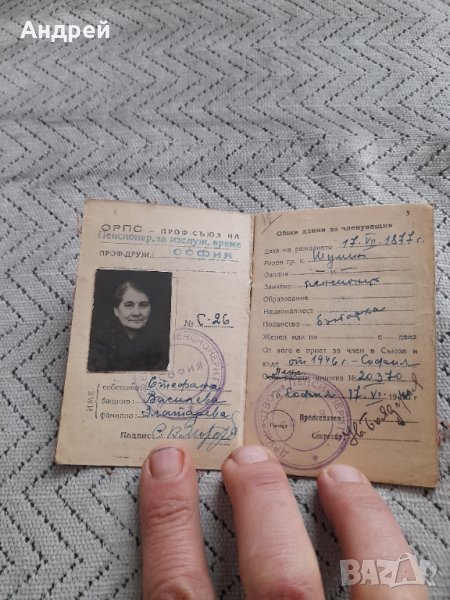 Андрей
ОРПС - ПРОФ. СЪЮЗ НА
Пенсионер. за изслуж. време
ПРОФ. ДРУЖ. СОФИЯ
№ Г-26
ИМЕ
собствено Стефана
бащино Василева
фамилно Златарева
Подпис
3
Общи данни за членуващия
Дата на раждането 17. VII. 1877 г.
Роден гр. с. Шумен
Околия
Занятие пенсионер
Образование
Националност
Поданство българка
Женен или не с деца
От кога е приет за член в Съюза и
къде от 1946 г. София
№ 20370
София 17. VI. 1948
Председател:
Секретар:
Печат
BAZAR